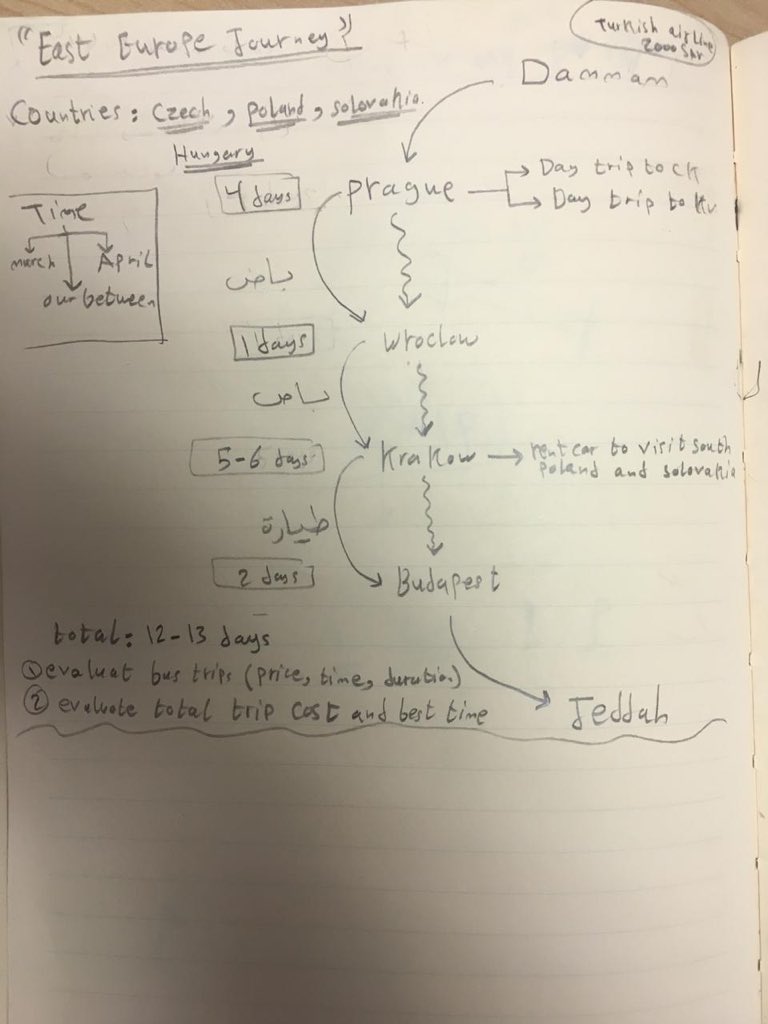 "East Europe Journey"
Turkish airline
2000 SAR
Damman
Countries: Czech, Poland, solovakia.
Hungary
4 days
prague
Day trip to CK
Day trip to KV
Time
march
April
our between
باص
1 days
wroclaw
باص
5-6 days
Krakow
rent car to visit south
poland and solovakia
طيارة
2 days
Budapest
total: 12-13 days
① evaluat bus trips (price, time, duration)
② evaluate total trip cost and best time
Jeddah